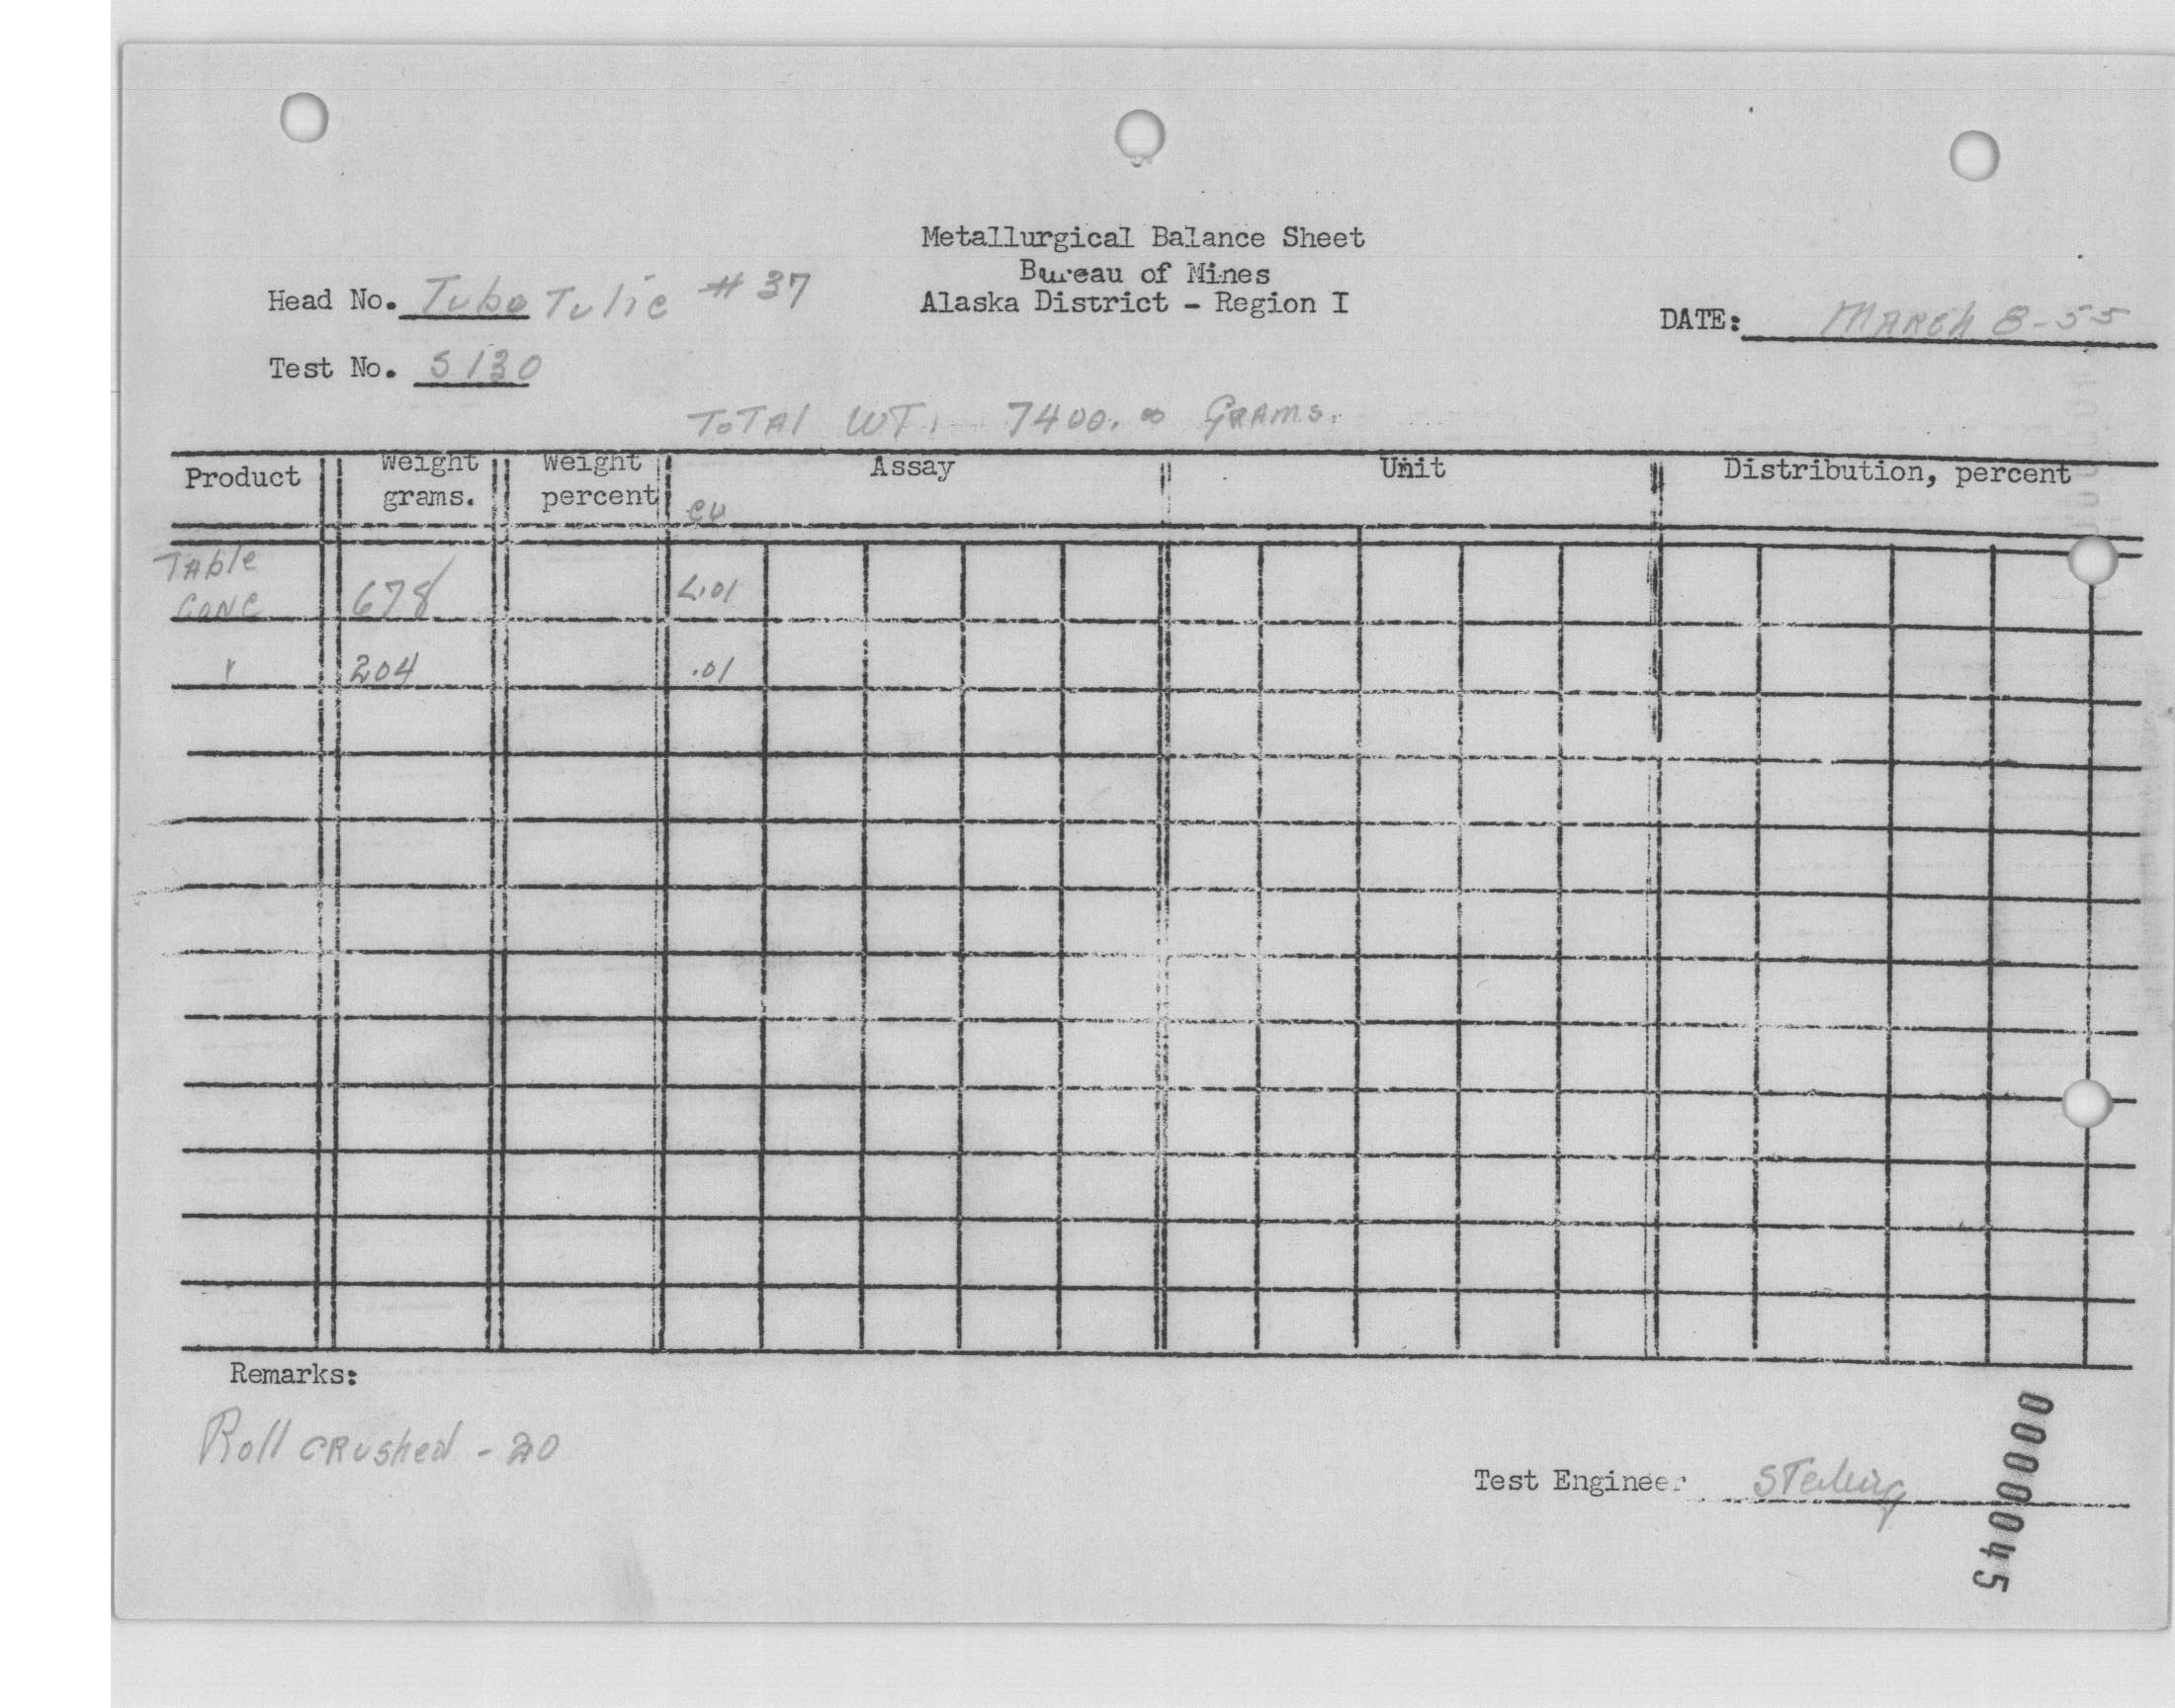 Metallurgical Balance Sheet
Bureau of Mines
Alaska District - Region I
Head No. Tubo Tulic # 37
DATE: MARCH 8-55
Test No. S130
TOTAL WT. 7400.00 GRAMS.
Product Weight grams. Weight percent Assay Unit Distribution, percent
eU
Table
CONC 678 <.01
" 204 .01
Remarks:
Roll CRushed - 20
Test Engineer Sterling
0000045